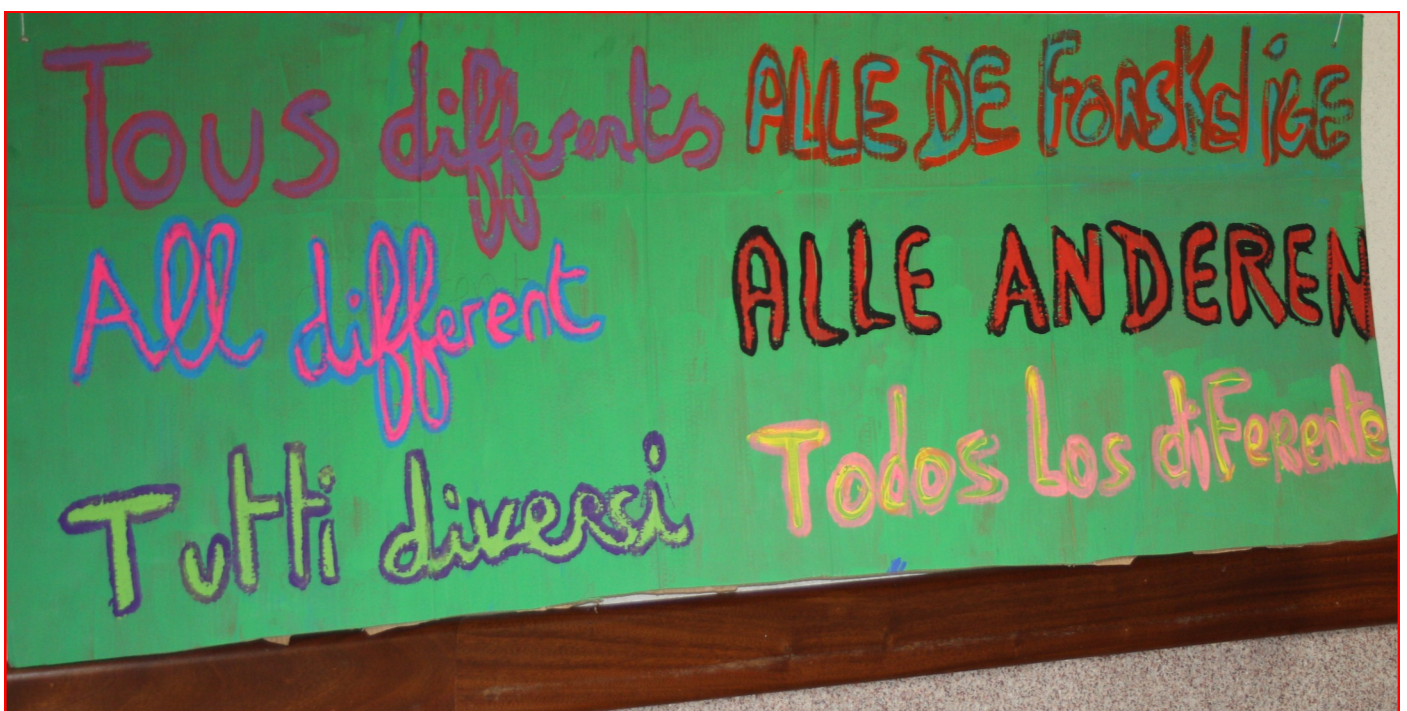 Tous differents
All different
Tutti diversi
ALLE DE FORSKELIGE
ALLE ANDEREN
Todos Los diFerente